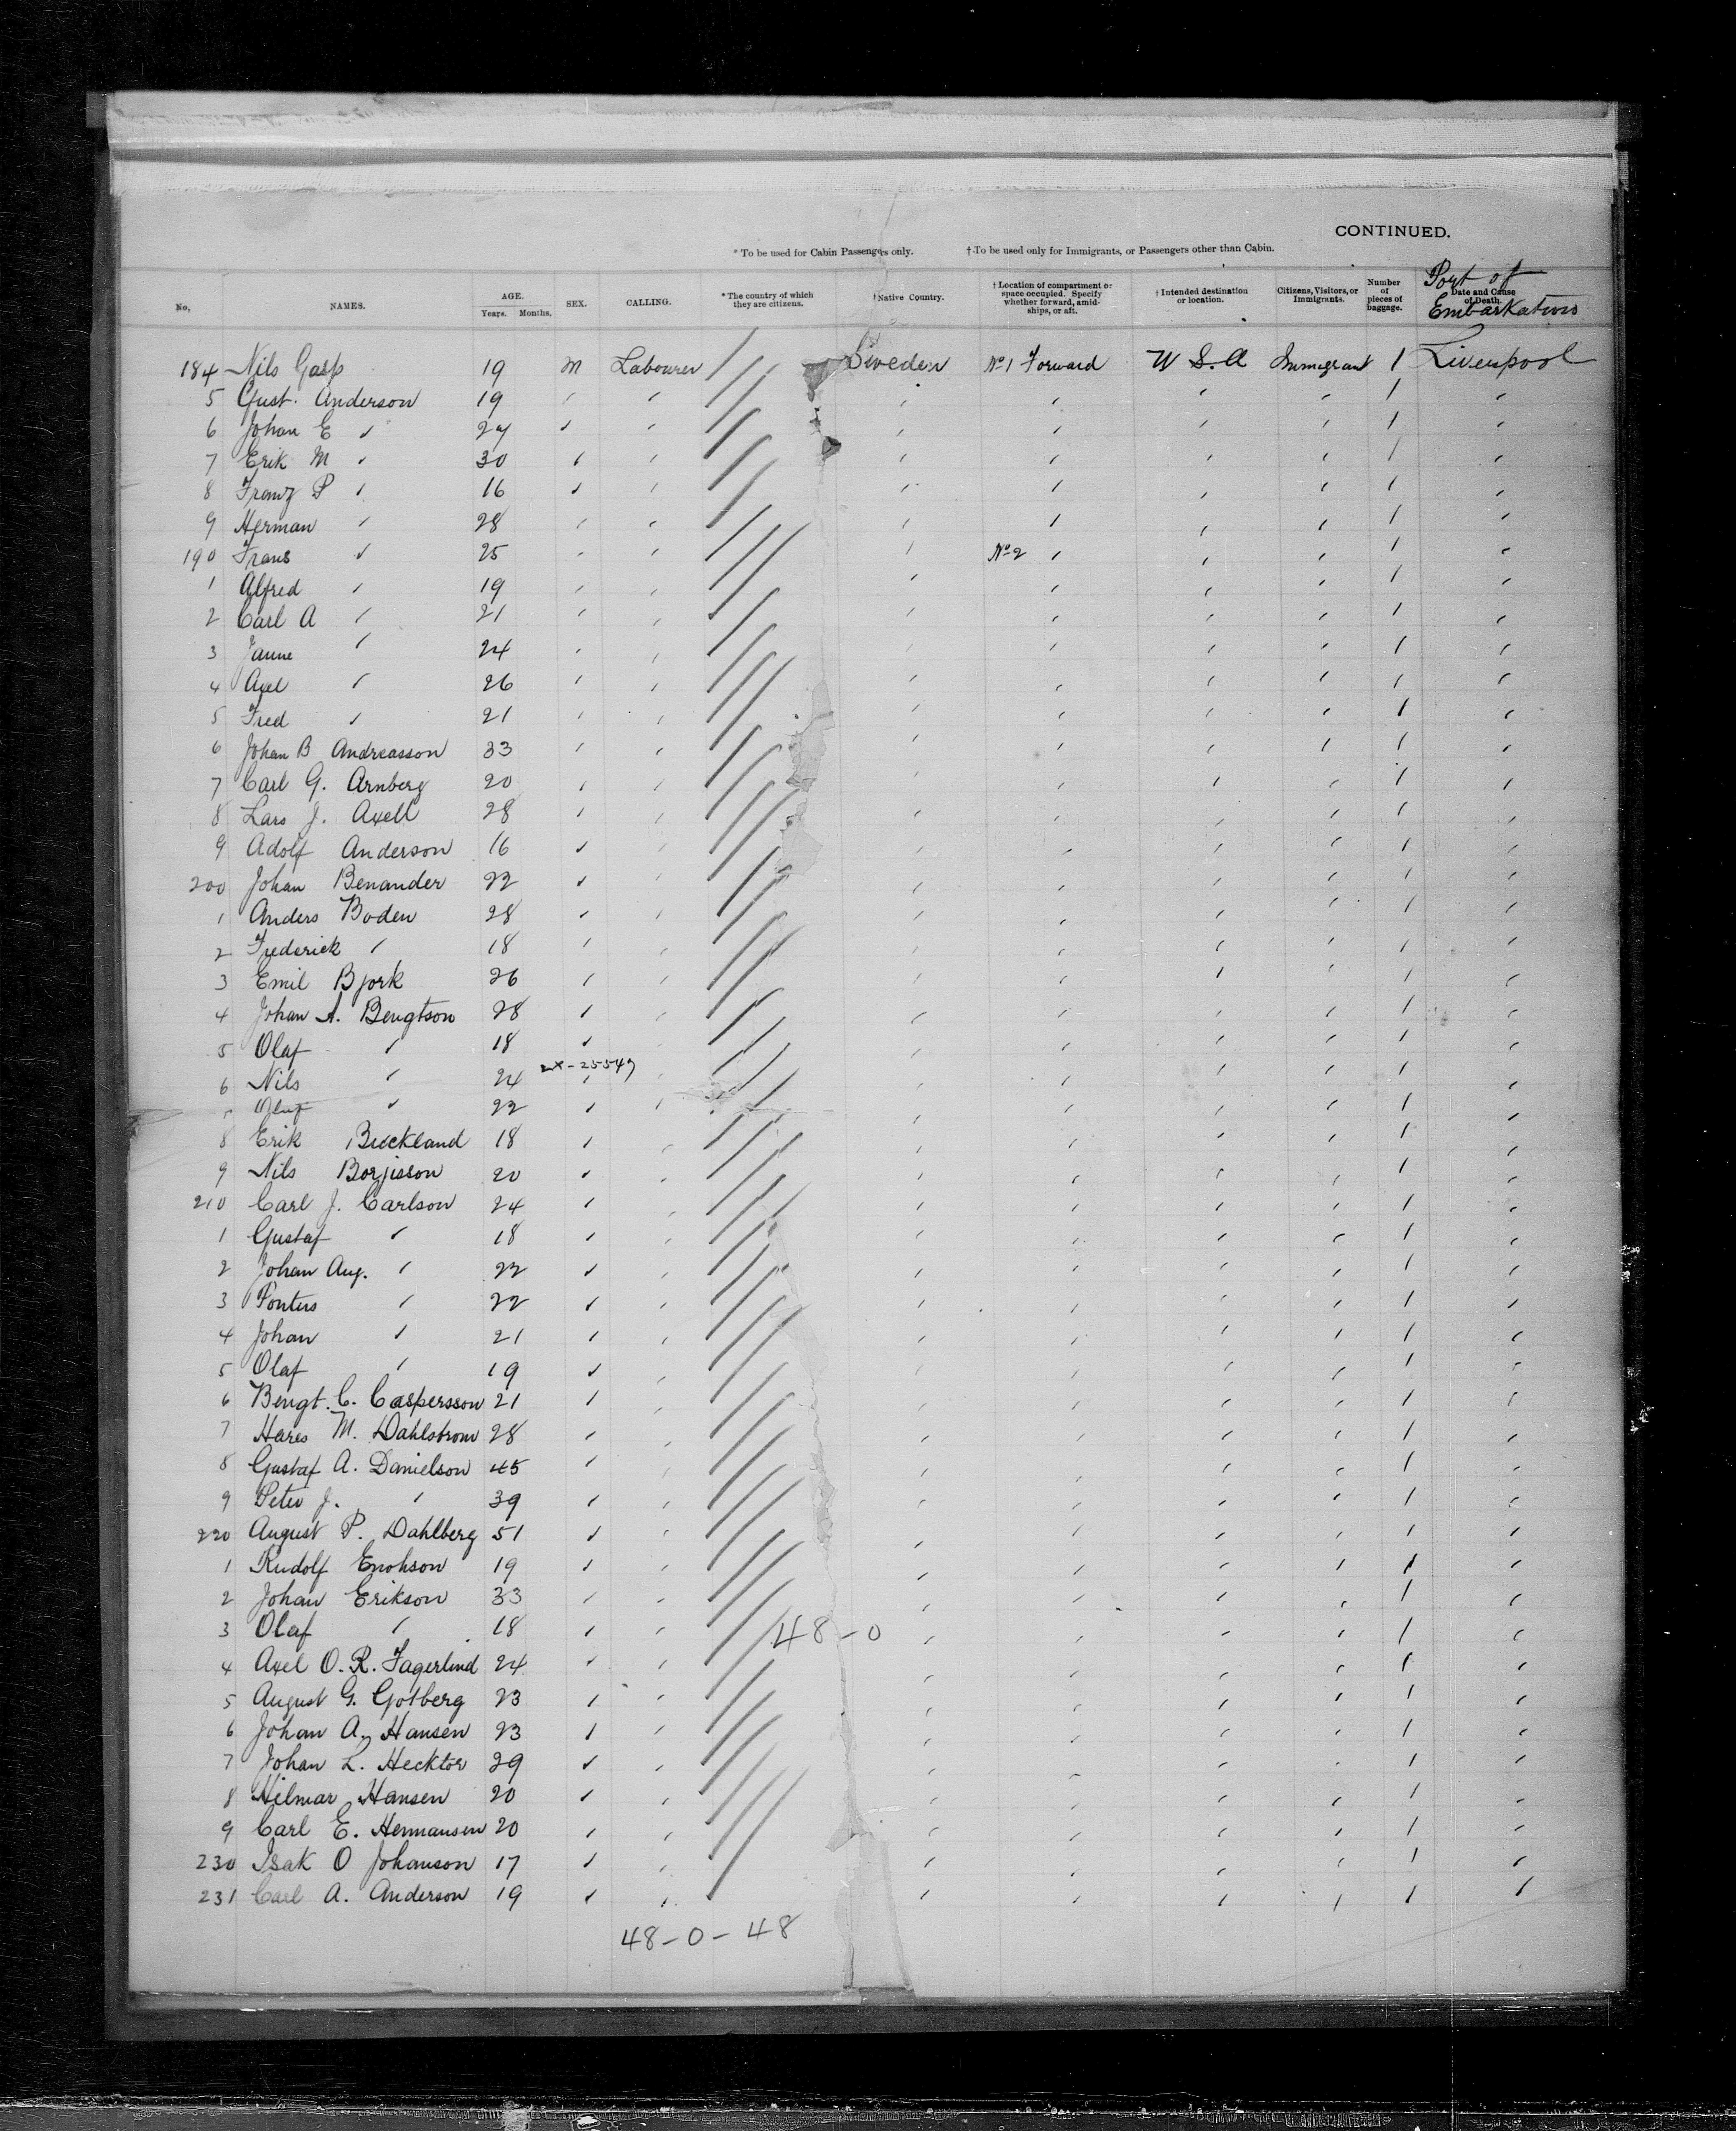 CONTINUED.
* To be used for Cabin Passengers only. † To be used only for Immigrants, or Passengers other than Cabin.
No. NAMES. AGE. Years. Months. SEX. CALLING. * The country of which they are citizens. † Native Country. † Location of compartment or space occupied. Specify whether forward, amidships, or aft. † Intended destination or location. Citizens, Visitors, or Immigrants. Number of pieces of baggage. Date and Cause of Death. Port of Embarkation
184 Nils Gasp 19 M Labourer Sweden No 1 Forward U S. A Immigrant 1 Liverpool
5 Gust. Anderson 19 " " " " " " 1 "
6 Johan E " 27 " " " " " " 1 "
7 Erik M " 30 " " " " " " 1 "
8 Franz P " 16 " " " " " " 1 "
9 Herman " 28 " " " " " " 1 "
190 Frans " 25 " " " No 2 " " " 1 "
1 Alfred " 19 " " " " " " 1 "
2 Carl A " 21 " " " " " " 1 "
3 Janne " 24 " " " " " " 1 "
4 Axel " 26 " " " " " " 1 "
5 Fred " 21 " " " " " " 1 "
6 Johan B Andreasson 33 " " " " " " 1 "
7 Carl G. Arnberg 20 " " " " " " 1 "
8 Lars J. Axell 28 " " " " " " 1 "
9 Adolf Anderson 16 " " " " " " 1 "
200 Johan Benander 22 " " " " " " 1 "
1 Anders Boden 28 " " " " " " 1 "
2 Frederick " 18 " " " " " " 1 "
3 Emil Bjork 26 " " " " " " 1 "
4 Johan A. Bengtson 28 " " " " " " 1 "
5 Olaf " 18 " " " " " " 1 "
2x-25547
6 Nils " 24 " " " " " " 1 "
" 22 " " " " " " 1 "
8 Erik Buckland 18 " " " " " " 1 "
9 Nils Borjisson 20 " " " " " " 1 "
210 Carl J. Carlson 24 " " " " " " 1 "
1 Gustaf " 18 " " " " " " 1 "
2 Johan Aug. " 22 " " " " " " 1 "
3 Pontus " 22 " " " " " " 1 "
4 Johan " 21 " " " " " " 1 "
5 Olaf " 19 " " " " " " 1 "
6 Bengt. C. Caspersson 21 " " " " " " 1 "
7 Hares M. Dahlstrom 28 " " " " " " 1 "
8 Gustaf A. Danielson 45 " " " " " " 1 "
9 Peter J. " 39 " " " " " " 1 "
220 August P. Dahlberg 51 " " " " " " 1 "
1 Rudolf Enohson 19 " " " " " " 1 "
2 Johan Erikson 33 " " " " " " 1 "
3 Olaf " 18 " " 48-0 " " " " 1 "
4 Axel O. R. Fagerlind 24 " " " " " " 1 "
5 August G. Gotberg 23 " " " " " " 1 "
6 Johan A. Hansen 23 " " " " " " 1 "
7 Johan L. Hecktor 29 " " " " " " 1 "
8 Hilmar Hansen 20 " " " " " " 1 "
9 Carl E. Hermansen 20 " " " " " " 1 "
230 Isak O Johanson 17 " " " " " " 1 "
231 Carl A. Anderson 19 " " " " " " 1 "
48-0-48